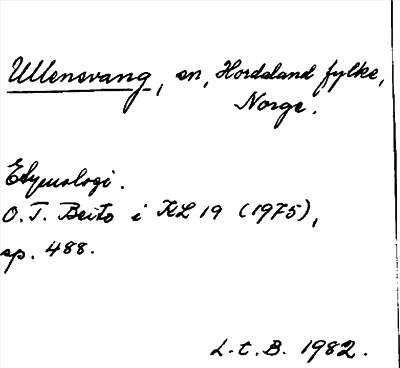 Ullensvang, sn, Hordaland fylke,
Norge.
Etymologi.
O. T. Beito i KL 19 (1975),
sp. 488.
L.t.B. 1982.